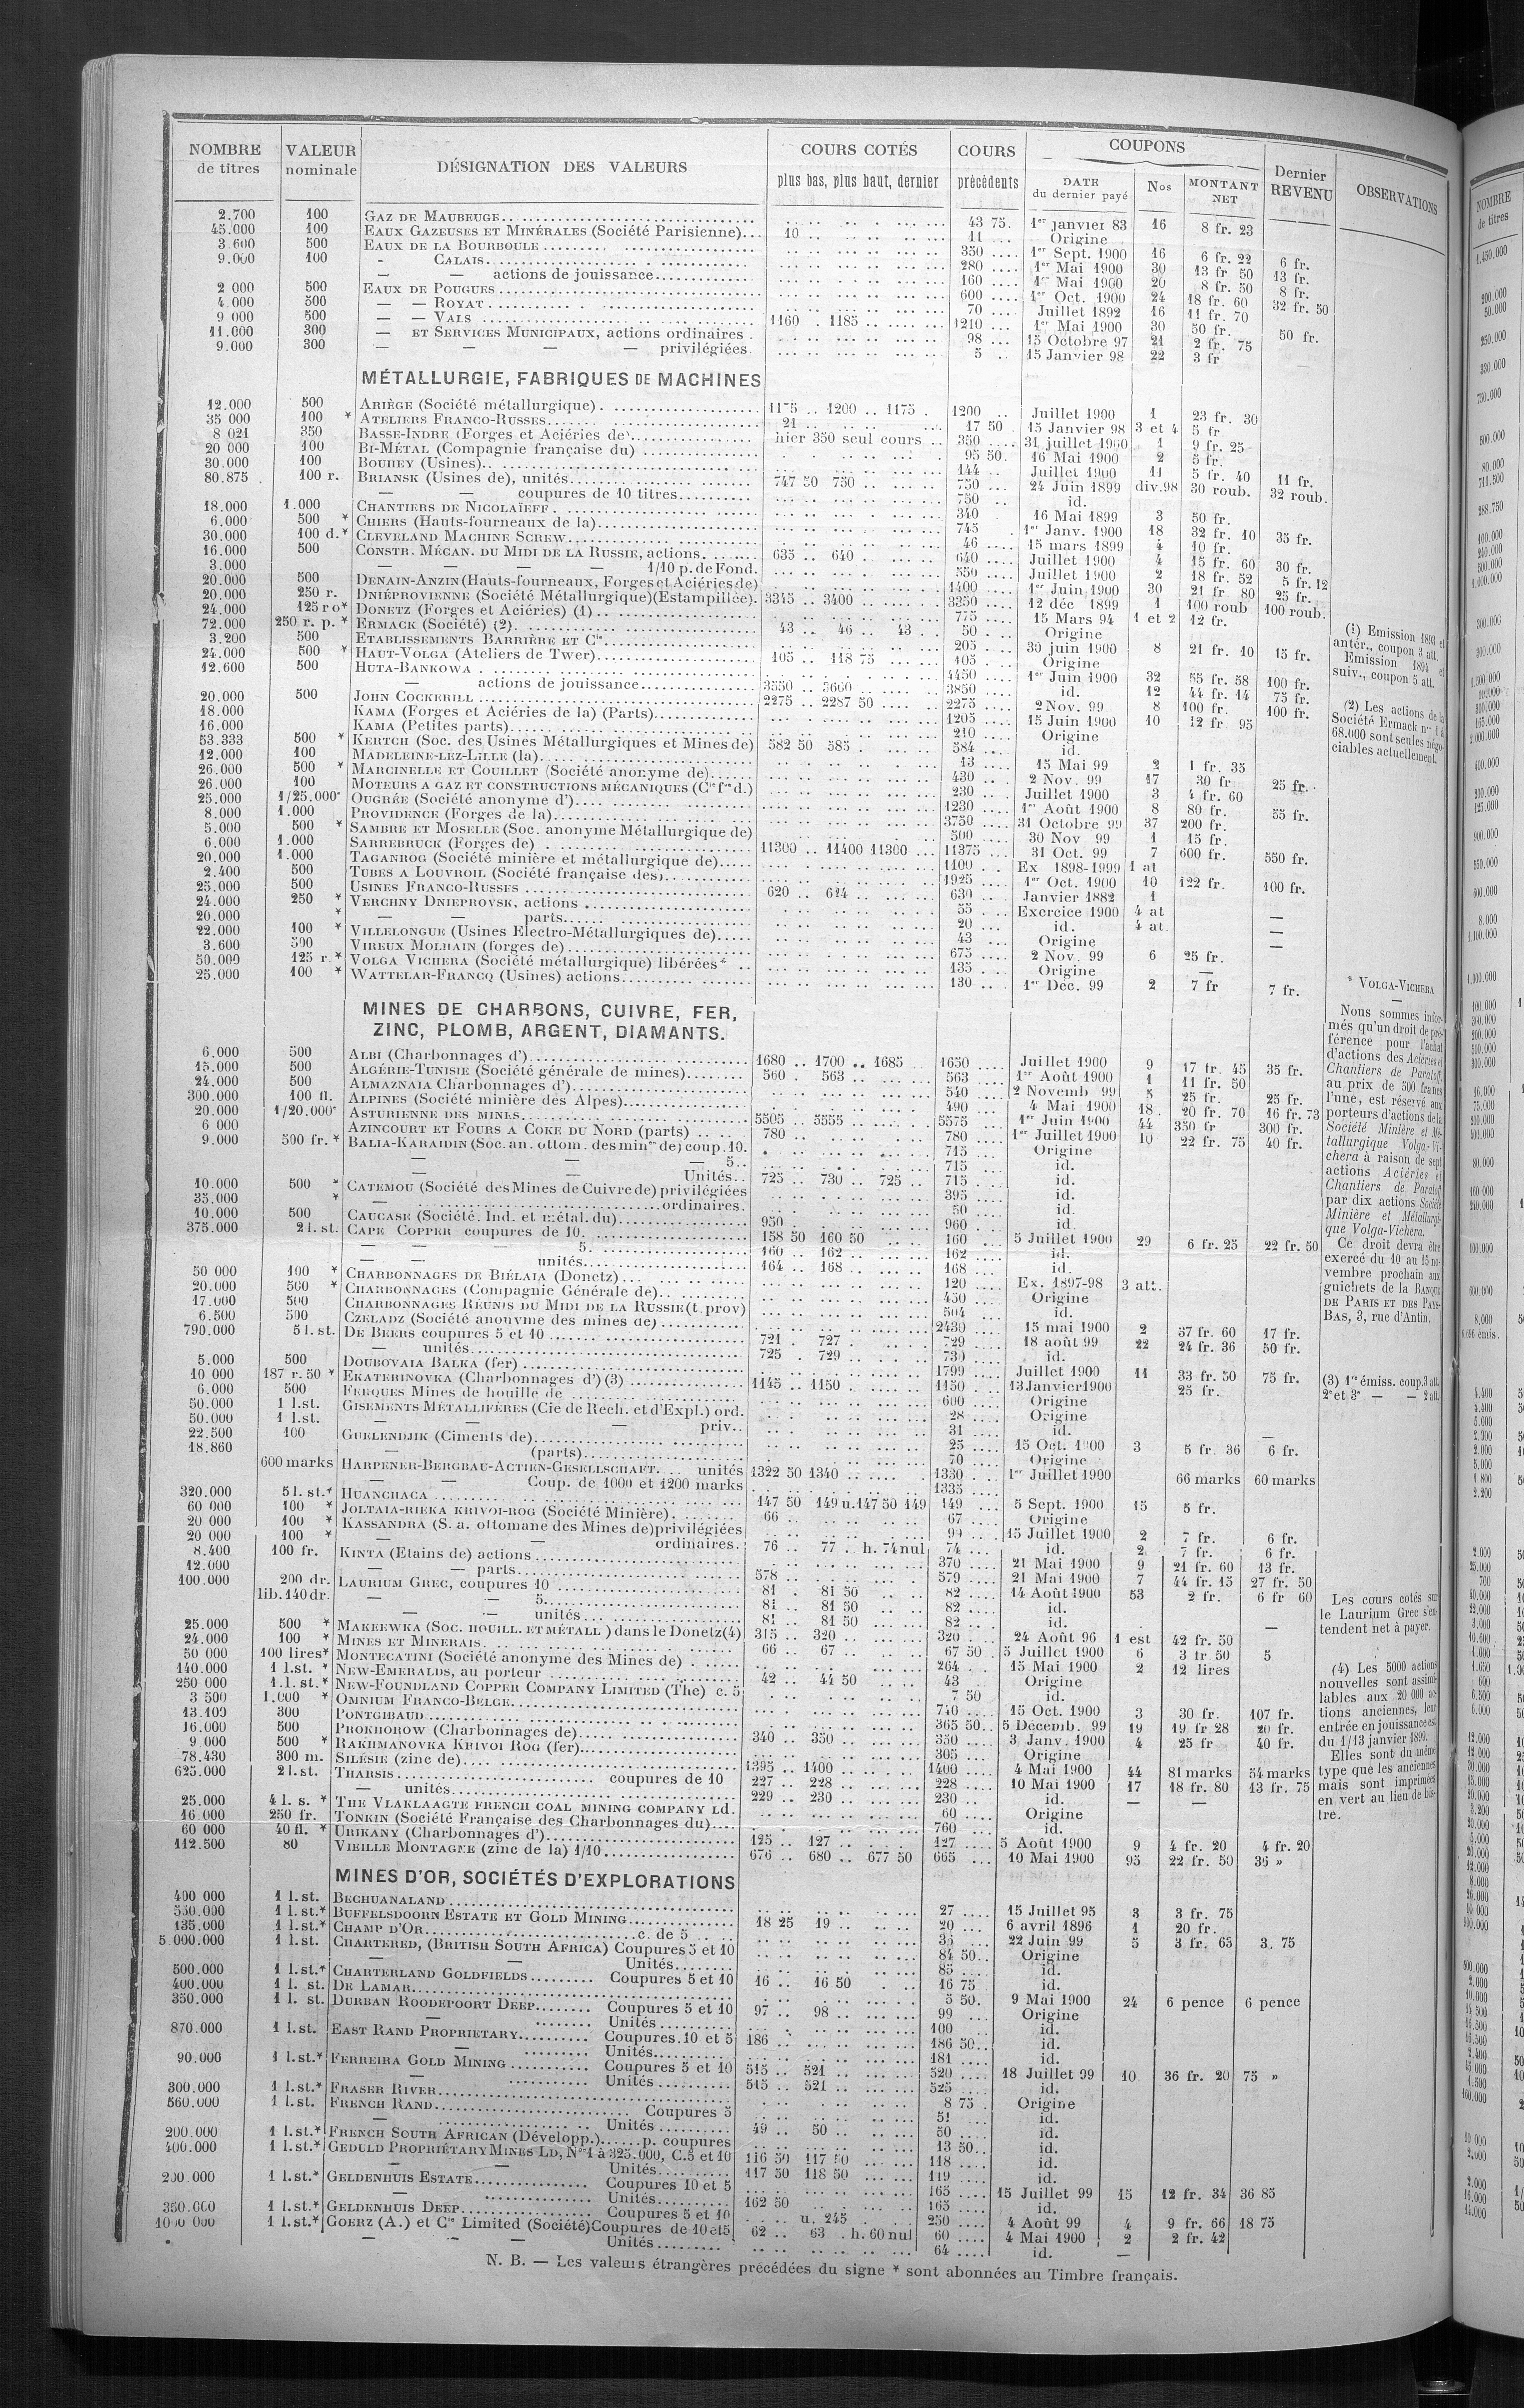 NOMBRE de titres | VALEUR nominale | DÉSIGNATION DES VALEURS | COURS COTÉS plus bas, plus haut, dernier | COURS précédents | COUPONS DATE du dernier payé | Nos | MONTANT NET | Dernier REVENU | OBSERVATIONS
2.700 100 GAZ DE MAUBEUGE 43 75 1er janvier 83 16 8 fr. 23
45.000 100 EAUX GAZEUSES ET MINÉRALES (Société Parisienne) 10 11 Origine
3.600 500 EAUX DE LA BOURBOULE 350 1er Sept. 1900 16 6 fr. 22 6 fr.
9.000 100 - CALAIS 280 1er Mai 1900 30 13 fr 50 13 fr.
— — actions de jouissance 160 1er Mai 1900 20 8 fr. 50 8 fr.
2 000 500 EAUX DE POUGUES 600 1er Oct. 1900 24 18 fr. 60 32 fr. 50
4.000 500 — — ROYAT 70 Juillet 1892 16 11 fr. 70
9 000 500 — — VALS 1160 1185 1210 1er Mai 1900 30 50 fr. 50 fr.
11.000 300 — ET SERVICES MUNICIPAUX, actions ordinaires 98 15 Octobre 97 21 2 fr. 75
9.000 300 — — — — privilégiées 5 15 Janvier 98 22 3 fr
MÉTALLURGIE, FABRIQUES DE MACHINES
12.000 500 ARIÈGE (Société métallurgique) 1175 1200 1175 1200 Juillet 1900 1 23 fr. 30
35 000 100 * ATELIERS FRANCO-RUSSES 21 17 50 15 Janvier 98 3 et 4 5 fr
8 021 350 BASSE-INDRE (Forges et Aciéries de) hier 350 seul cours 350 31 juillet 1900 1 9 fr. 25
20 000 100 BI-MÉTAL (Compagnie française du) 95 50 16 Mai 1900 2 5 fr.
30.000 100 BOUHEY (Usines) 144 Juillet 1900 11 5 fr. 40 11 fr.
80.875 100 r. BRIANSK (Usines de), unités 747 50 750 750 24 Juin 1899 div.98 30 roub. 32 roub.
— — coupures de 10 titres 750 id.
18.000 1.000 CHANTIERS DE NICOLAÏEFF 340 16 Mai 1899 3 50 fr.
6.000 500 * CHIERS (Hauts-fourneaux de la) 745 1er Janv. 1900 18 32 fr. 10 35 fr.
30.000 100 d.* CLEVELAND MACHINE SCREW 46 15 mars 1899 4 10 fr.
16.000 500 CONSTR. MÉCAN. DU MIDI DE LA RUSSIE, actions 635 640 640 Juillet 1900 4 15 fr. 60 30 fr.
3.000 — — — — 1/10 p. de Fond. 550 Juillet 1900 2 18 fr. 52 5 fr. 12
20.000 500 DENAIN-ANZIN (Hauts-fourneaux, Forges et Aciéries de) 1400 1er Juin 1900 30 21 fr 80 25 fr.
20.000 250 r. DNIÉPROVIENNE (Société Métallurgique)(Estampillée). 3345 3400 3350 12 déc 1899 1 100 roub 100 roub.
24.000 125 ro* DONETZ (Forges et Aciéries) (1) 775 15 Mars 94 1 et 2 12 fr.
72.000 250 r. p. * ERMACK (Société) (2) 43 46 43 50 Origine
3.200 500 ETABLISSEMENTS BARRIÈRE ET Cie 205 30 juin 1900 8 21 fr. 10 15 fr.
24.000 500 * HAUT-VOLGA (Ateliers de Twer) 105 118 75 105 Origine
12.600 500 HUTA-BANKOWA 4450 1er Juin 1900 32 55 fr. 58 100 fr.
— actions de jouissance 3550 3600 3850 id. 12 44 fr. 14 75 fr.
20.000 500 JOHN COCKERILL 2275 2287 50 2275 2 Nov. 99 8 100 fr. 100 fr.
18.000 KAMA (Forges et Aciéries de la) (Parts) 1205 15 Juin 1900 10 12 fr 95
16.000 KAMA (Petites parts) 210 Origine
53.333 500 * KERTCH (Soc. des Usines Métallurgiques et Mines de) 582 50 585 584 id.
12.000 100 MADELEINE-LEZ-LILLE (la) 13 15 Mai 99 2 1 fr. 35
26.000 500 * MARCINELLE ET COUILLET (Société anonyme de) 430 2 Nov. 99 17 30 fr 25 fr.
26.000 100 MOTEURS A GAZ ET CONSTRUCTIONS MÉCANIQUES (Cie fse d.) 230 Juillet 1900 3 4 fr. 60
25.000 1/25.000e OUGRÉE (Société anonyme d') 1230 1er Août 1900 8 80 fr. 55 fr.
8.000 1.000 PROVIDENCE (Forges de la) 3750 31 Octobre 99 37 200 fr.
5.000 500 * SAMBRE ET MOSELLE (Soc. anonyme Métallurgique de) 500 30 Nov 99 1 15 fr.
6.000 1.000 SARREBRUCK (Forges de) 11300 11400 11300 11375 31 Oct. 99 7 600 fr. 550 fr.
20.000 1.000 TAGANROG (Société minière et métallurgique de) 1100 Ex 1898-1999 1 at
2.400 500 TUBES A LOUVROIL (Société française des) 1925 1er Oct. 1900 10 122 fr. 100 fr.
25.000 500 USINES FRANCO-RUSSES 620 624 630 Janvier 1882 1
24.000 250 * VERCHNY DNIEPROVSK, actions 55 Exercice 1900 4 at —
20.000 * — — parts 20 id. 4 at. —
22.000 100 * VILLELONGUE (Usines Electro-Métallurgiques de) 43 Origine —
3.600 500 VIREUX MOLHAIN (forges de) 675 2 Nov. 99 6 25 fr.
50.000 125 r.* VOLGA VICHERA (Société métallurgique) libérées* 135 Origine —
25.000 100 * WATTELAR-FRANCQ (Usines) actions 130 1er Déc. 99 2 7 fr 7 fr.
MINES DE CHARBONS, CUIVRE, FER,
ZINC, PLOMB, ARGENT, DIAMANTS.
6.000 500 ALBI (Charbonnages d') 1680 1700 1685 1650 Juillet 1900 9 17 fr. 45 35 fr.
15.000 500 ALGÉRIE-TUNISIE (Société générale de mines) 560 563 563 1er Août 1900 1 11 fr. 50
24.000 500 ALMAZNAIA Charbonnages d') 540 2 Novemb 99 5 25 fr. 25 fr.
300.000 100 fl. ALPINES (Société minière des Alpes) 490 4 Mai 1900 18 20 fr. 70 16 fr. 73
20.000 1/20.000e ASTURIENNE DES MINES 5505 5555 5575 1er Juin 1900 44 350 fr 300 fr.
6 000 AZINCOURT ET FOURS A COKE DU NORD (parts) 780 780 1er Juillet 1900 10 22 fr. 75 40 fr.
9.000 500 fr. * BALIA-KARAIDIN (Soc. an. ottom. des mines de) coup. 10. 715 Origine
— — — 5 715 id.
Unités 725 730 725 715 id.
10.000 500 * CATEMOU (Société des Mines de Cuivre de) privilégiées 395 id.
35.000 * — ordinaires. 50 id.
10.000 500 CAUCASE (Société. Ind. et métal. du) 950 960 id.
375.000 2 l. st. CAPE COPPER coupures de 10 158 50 160 50 160 5 Juillet 1900 29 6 fr. 25 22 fr. 50
— — 5 160 162 162 id.
— — unités 164 168 168 id.
50 000 100 * CHARBONNAGES DE BIÉLAIA (Donetz) 120 Ex. 1897-98 3 att.
20.000 500 * CHARBONNAGES (Compagnie Générale de) 450 Origine
17.000 500 CHARBONNAGES RÉUNIS DU MIDI DE LA RUSSIE (t. prov) 504 id.
6.500 500 CZELADZ (Société anonyme des mines de) 2430 15 mai 1900 2 37 fr. 60 17 fr.
790.000 5 l. st. DE BEERS coupures 5 et 10 721 727 729 18 août 99 22 24 fr. 36 50 fr.
— unités 725 729 730 id.
5.000 500 DOUBOVAIA BALKA (fer) 1799 Juillet 1900 11 33 fr. 50 75 fr.
10 000 187 r. 50 * EKATERINOVKA (Charbonnages d') (3) 1145 1150 1150 13 Janvier 1900 25 fr.
6.000 500 FERQUES Mines de houille de 600 Origine
50.000 1 l.st. GISEMENTS MÉTALLIFÈRES (Cie de Rech. et d'Expl.) ord. 28 Origine
50.000 1 l.st. — — — priv. 31 id. —
22.500 100 GUELENDJIK (Ciments de) 25 15 Oct. 1900 3 5 fr. 36 6 fr.
18.860 — (parts) 70 Origine
600 marks HARPENER-BERGBAU-ACTIEN-GESELLSCHAFT unités 1322 50 1340 1330 1er Juillet 1900 66 marks 60 marks
— — Coup. de 1000 et 1200 marks 1335
320.000 5 l. st.* HUANCHACA 147 50 149 u. 147 50 149 149 5 Sept. 1900 15 5 fr.
60 000 100 * JOLTAIA-RIEKA KRIVOI-ROG (Société Minière) 66 67 Origine
20 000 100 * KASSANDRA (S. a. ottomane des Mines de) privilégiées 99 15 Juillet 1900 2 7 fr. 6 fr.
20 000 100 * — ordinaires. 76 77 h. 74 nul 74 id. 2 7 fr. 6 fr.
8.400 100 fr. KINTA (Etains de) actions 370 21 Mai 1900 9 21 fr. 60 13 fr.
12.000 — — parts 578 579 21 Mai 1900 7 44 fr. 15 27 fr. 50
100.000 200 dr. LAURIUM GREC, coupures 10 81 81 50 82 14 Août 1900 53 2 fr. 6 fr 60
lib. 140 dr. — — 5 81 81 50 82 id.
— — unités 81 81 50 82 id. —
25.000 500 * MAKEEWKA (Soc. HOUILL. ET MÉTALL) dans le Donetz (4) 315 320 320 24 Août 96 1 est 42 fr. 50
24.000 100 * MINES ET MINERAIS 66 67 67 50 5 Juillet 1900 6 3 fr 50 5
50 000 100 lires* MONTECATINI (Société anonyme des Mines de) 264 15 Mai 1900 2 12 lires
140.000 1 l.st. * NEW-EMERALDS, au porteur 42 44 50 43 Origine
250 000 1.l. st.* NEW-FOUNDLAND COPPER COMPANY LIMITED (The) c. 5 7 50 id.
3 500 1.000 * OMNIUM FRANCO-BELGE 740 15 Oct. 1900 3 30 fr. 107 fr.
13.109 300 PONTGIBAUD 365 50 5 Décemb. 99 19 19 fr 28 20 fr.
16.000 500 PROKHOROW (Charbonnages de) 340 350 350 3 Janv. 1900 4 25 fr 40 fr.
9.000 500 * RAKHMANOVKA KRIVOI ROG (fer) 305 Origine
78.430 300 m. SILÉSIE (zinc de) 1395 1400 1400 4 Mai 1900 44 81 marks 54 marks
625.000 2 l.st. THARSIS coupures de 10 227 228 228 10 Mai 1900 17 18 fr. 80 13 fr. 75
— unités 229 230 230 id. — —
25.000 4 l. s. * THE VLAKLAAGTE FRENCH COAL MINING COMPANY Ld. 60 Origine
16.000 250 fr. TONKIN (Société Française des Charbonnages du) 760 id.
60 000 40 fl. * URIKANY (Charbonnages d') 125 127 127 5 Août 1900 9 4 fr. 20 4 fr. 20
112.500 80 VIEILLE MONTAGNE (zinc de la) 1/10 676 680 677 50 665 10 Mai 1900 95 22 fr. 50 36 »
MINES D'OR, SOCIÉTÉS D'EXPLORATIONS
400 000 1 l. st. BECHUANALAND 27 15 Juillet 95 3 3 fr. 75
550.000 1 l. st.* BUFFELSDOORN ESTATE ET GOLD MINING 18 25 19 20 6 avril 1896 1 20 fr.
135.000 1 l.st.* CHAMP D'OR c. de 5 22 Juin 99 5 3 fr. 65 3. 75
5 000.000 1 l. st. CHARTERED, (BRITISH SOUTH AFRICA) Coupures 5 et 10 84 50 Origine
— Unités 85 id.
500.000 1 l.st.* CHARTERLAND GOLDFIELDS Coupures 5 et 10 16 16 50 16 75 id.
400.000 1 l. st. DE LAMAR 5 50 9 Mai 1900 24 6 pence 6 pence
350.000 1 l. st. DURBAN ROODEPOORT DEEP Coupures 5 et 10 97 98 99 Origine
— Unités 100 id.
870.000 1 l.st. EAST RAND PROPRIETARY Coupures 10 et 5 186 186 50 id.
— Unités 181 id.
90.000 1 l.st.* FERREIRA GOLD MINING Coupures 5 et 10 515 521 520 18 Juillet 99 10 36 fr. 20 75 »
— Unités 515 521 525 id.
300.000 1 l.st.* FRASER RIVER 8 75 Origine
560.000 1 l.st. FRENCH RAND Coupures 5 51 id.
— Unités 49 50 50 id.
200.000 1 l.st.* FRENCH SOUTH AFRICAN (Développ.) p. coupures 13 50 id.
400.000 1 l.st.* GEDULD PROPRIÉTARY MINES LD, Nos 1 à 325.000, C. 5 et 10 116 50 117 50 118 id.
— Unités 117 50 118 50 119 id.
200.000 1 l.st.* GELDENHUIS ESTATE Coupures 10 et 5 165 15 Juillet 99 15 12 fr. 34 36 85
— Unités 162 50 165 id.
350.000 1 l.st.* GELDENHUIS DEEP Coupures 5 et 10 u. 245 250 4 Août 99 4 9 fr. 66 18 75
1000 000 1 l.st.* GOERZ (A.) et Cie Limited (Société) Coupures de 10 et 5 62 63 h. 60 nul 60 4 Mai 1900 2 2 fr. 42
— — Unités 64 id. —
N. B. — Les valeurs étrangères précédées du signe * sont abonnées au Timbre français.
(1) Emission 1893 et
antér., coupon 3 att.
Emission 1894 et
suiv., coupon 5 att.
(2) Les actions de la
Société Ermack nos 1 à
68.000 sont seules négo-
ciables actuellement.
* VOLGA-VICHERA
—
Nous sommes infor-
més qu'un droit de pré-
férence pour l'achat
d'actions des Aciéries et
Chantiers de Paratoff,
au prix de 500 francs
l'une, est réservé aux
porteurs d'actions de la
Société Minière et Mé-
tallurgique Volga-Vi-
chera à raison de sept
actions Aciéries et
Chantiers de Paratoff
par dix actions Société
Minière et Métallurgi-
que Volga-Vichera.
Ce droit devra être
exercé du 10 au 15 no-
vembre prochain aux
guichets de la BANQUE
DE PARIS ET DES PAYS-
BAS, 3, rue d'Antin.
(3) 1re émiss. coup. 3 att.
2e et 3e — — 2 att.
Les cours cotés sur
le Laurium Grec s'en-
tendent net à payer.
(4) Les 5000 actions
nouvelles sont assimi-
lables aux 20 000 ac-
tions anciennes, leur
entrée en jouissance est
du 1/13 janvier 1899.
Elles sont du même
type que les anciennes
mais sont imprimées
en vert au lieu de bis-
tre.
NOMBRE
de titres